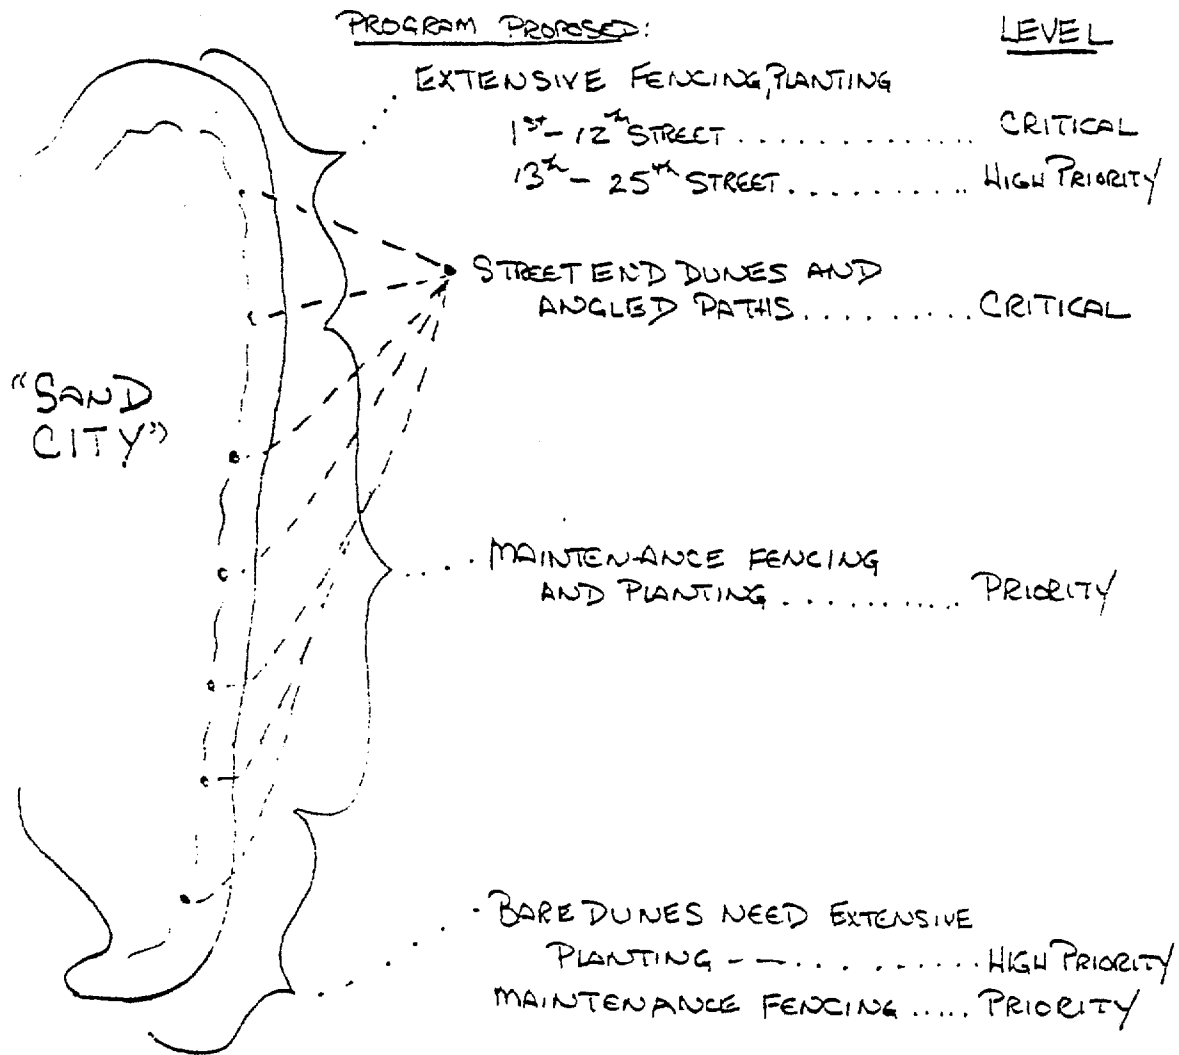 PROGRAM PROPOSED: LEVEL
EXTENSIVE FENCING, PLANTING
1st - 12th STREET ............. CRITICAL
13th - 25th STREET ............ HIGH PRIORITY
STREET END DUNES AND
ANGLED PATHS .......... CRITICAL
"SAND
CITY"
MAINTENANCE FENCING
AND PLANTING ........... PRIORITY
BARE DUNES NEED EXTENSIVE
PLANTING -- .......... HIGH PRIORITY
MAINTENANCE FENCING ..... PRIORITY